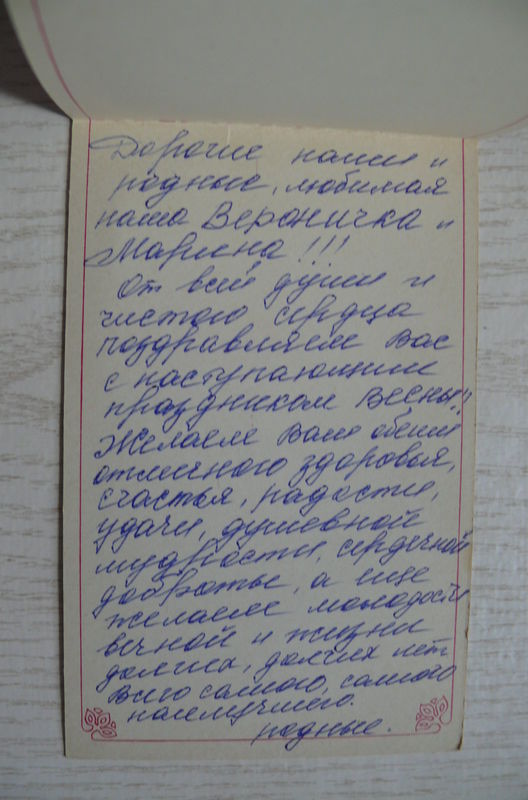 Дорогие наши и
родные, любимая
наша Вероничка и
Марина!!!
От всей души и
чистого сердца
поздравляем Вас
с наступающим
праздником Весны!!
Желаем Вам обеим
отличного здоровья,
счастья, радости,
удачи, душевной
мудрости, сердечной
доброты, а еще
желаем молодости
вечной и жизни
долгих, долгих лет.
Всего самого, самого
наилучшего.
родные.